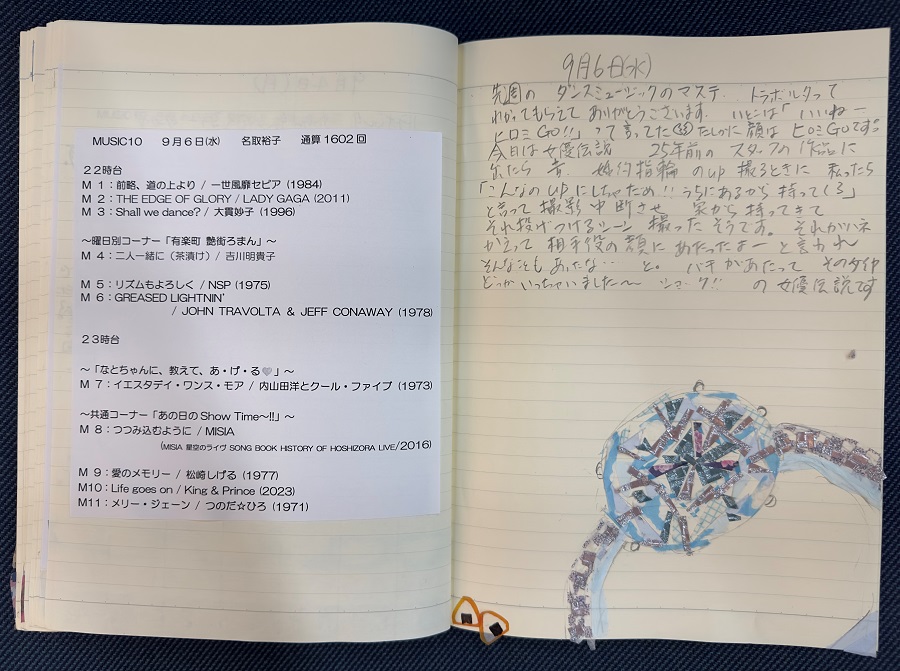 MUSIC10　９月６日(水)　名取裕子　通算 1602 回
２２時台
M 1：前略、道の上より / 一世風靡セピア (1984)
M 2：THE EDGE OF GLORY / LADY GAGA (2011)
M 3：Shall we dance? / 大貫妙子 (1996)
～曜日別コーナー「有楽町 艶街ろまん」～
M 4：二人一緒に（茶漬け）/ 吉川明貴子
M 5：リズムもよろしく / NSP (1975)
M 6：GREASED LIGHTNIN'
/ JOHN TRAVOLTA & JEFF CONAWAY (1978)
２３時台
～「なとちゃんに、教えて、あ・げ・る♡」～
M 7：イエスタデイ・ワンス・モア / 内山田洋とクール・ファイブ (1973)
～共通コーナー「あの日の Show Time～!!」～
M 8：つつみ込むように / MISIA
(MISIA 星空のライヴ SONG BOOK HISTORY OF HOSHIZORA LIVE/2016)
M 9：愛のメモリー / 松崎しげる (1977)
M10：Life goes on / King & Prince (2023)
M11：メリー・ジェーン / つのだ☆ひろ (1971)
9月6日(水)
先週の ダンスミュージックのマステ、トラボルタって
わかってもらえて ありがとうございます. いとこは「いいねー
ヒロミGO!!」って言ってた たしかに顔は ヒロミGOです。
今日は女優伝説 25年前の スタッフの作品に
出たら 昔、婚約指輪 のup 撮るときに 私ったら
「こんなのupにしちゃだめ!! うちにあるから持ってくる」
と言って 撮影中断させ 家から 持ってきて
それ投げつけるシーン 撮った そうです。それがハネ
かえって 相手役の顔にあたったよー と言われ
そんなこともあったな… と。バチがあたって そのダイヤ
どっかいっちゃいました～ の女優伝説です